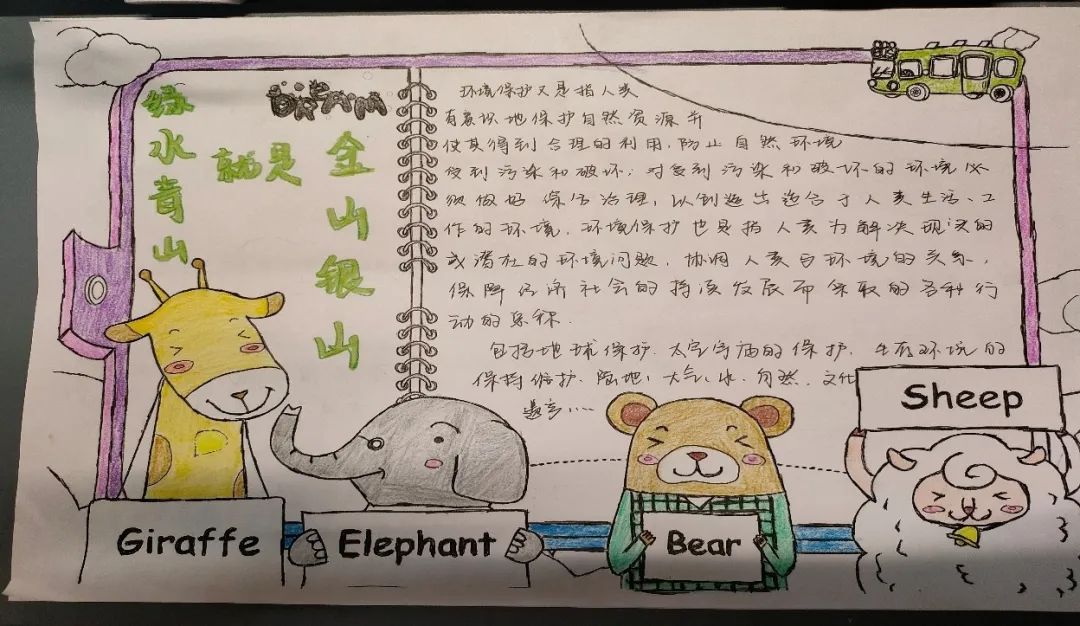 绿水青山
就是
金山银山
DREAM
环境保护又是指人类
有意识地保护自然资源并
使其得到合理的利用,防止自然环境
受到污染和破坏;对受到污染和破坏的环境必
须做好综合治理,以创造出适合于人类生活、工
作的环境.环境保护也是指人类为解决现实的
或潜在的环境问题,协调人类与环境的关系,
保障经济社会的持续发展而采取的各种行
动的总称.
包括地球保护.太空宇宙的保护.生存环境的
保持维护.陆地、大气、水、自然、文化
遗产.....
Giraffe
Elephant
Bear
Sheep